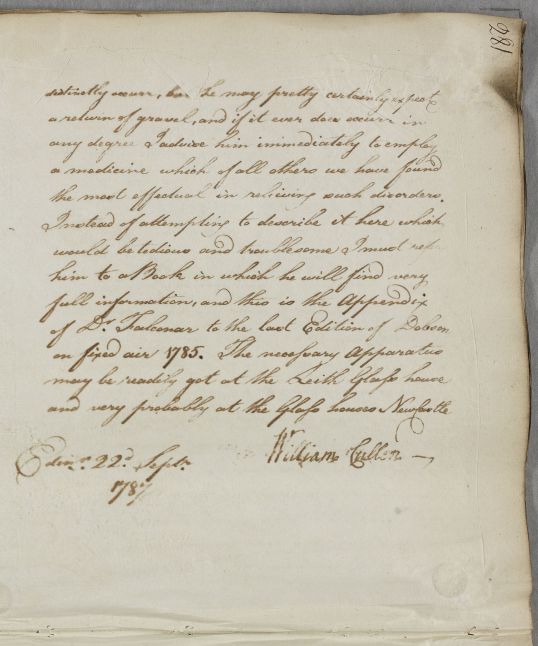 281
distinctly occurr, he may pretty certainly expect
a return of gravel, and if it ever does occurr in
any degree I advise him immediately to employ
a medicine which of all others we have found
the most effectual in relieving such disorders.
Instead of attempting to describe it here which
would be tedious and troublesome I must refer
him to a Book in which he will find very
full information, and this is the Appendix
of Dr. Falconar to the last Edition of Dobson
on fixed air 1785. The necessary Apparatus
may be readily got at the Leith Glass house
and very probably at the Glass houses Newcastle
William Cullen
Edinr. 22d. Septr.
1787